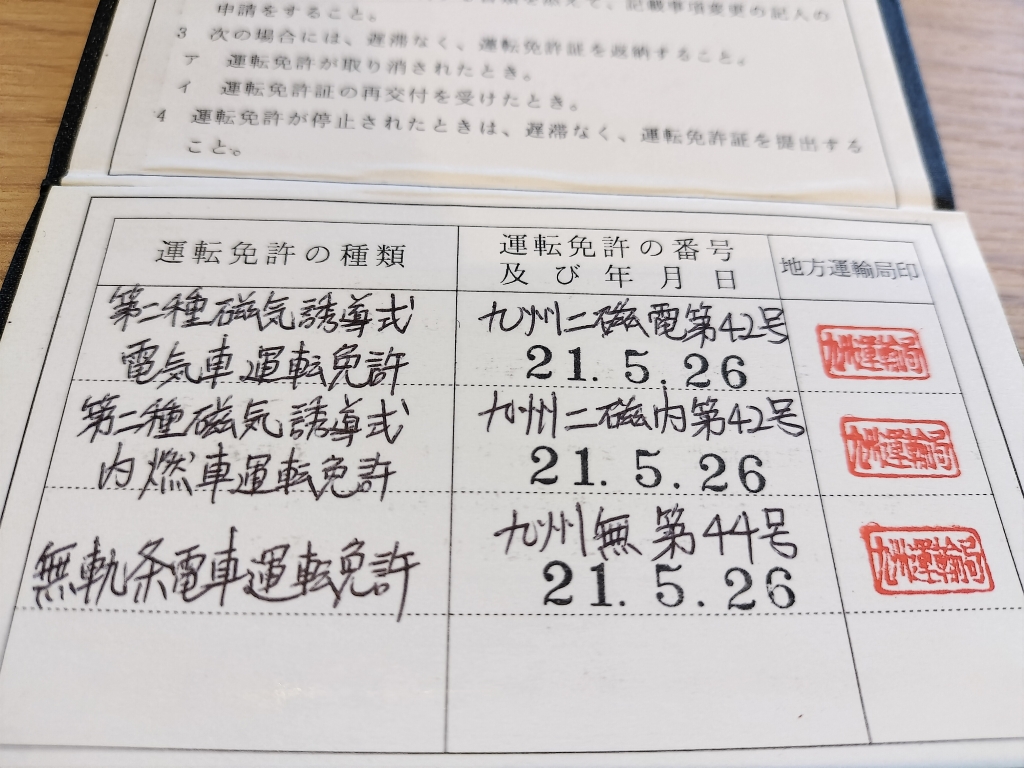 申請をすること。
3 次の場合には、遅滞なく、運転免許証を返納すること。
ア 運転免許が取り消されたとき。
イ 運転免許証の再交付を受けたとき。
4 運転免許が停止されたときは、遅滞なく、運転免許証を提出する
こと。
運転免許の種類
運転免許の番号
及び年月日
地方運輸局印
第二種磁気誘導式
電気車運転免許
九州二磁電第42号
21.5.26
九州運輸局
第二種磁気誘導式
内燃車運転免許
九州二磁内第42号
21.5.26
九州運輸局
無軌条電車運転免許
九州無第44号
21.5.26
九州運輸局